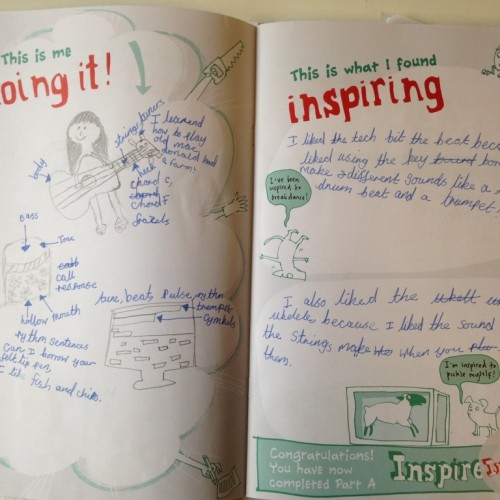 This is me
oing it!
string tuners
I learnend
how to play
old mac
donald had
a farm!
body
neck
chord C,
chord F
frets
BASS
Tone
call
response
hollow mouth
rythm sentences
Can I borrow your
felt tip pen,
I like fish and chips.
tune, beats, Pulse, rythm
trumpet
cymbols
This is what I found
inspiring
I liked the tech bit the beat beca
liked using the key board
make different sounds like a
drum beat and a trumpet.
I've been
inspired to
breakdance!
I also liked the
ukelele because I liked the sound
the strings make when you
them.
I'm inspired to
pickle myself!
Congratulations!
You have now
completed Part A
Inspire